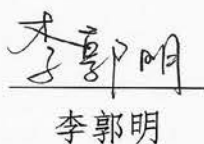 李郭明
李郭明